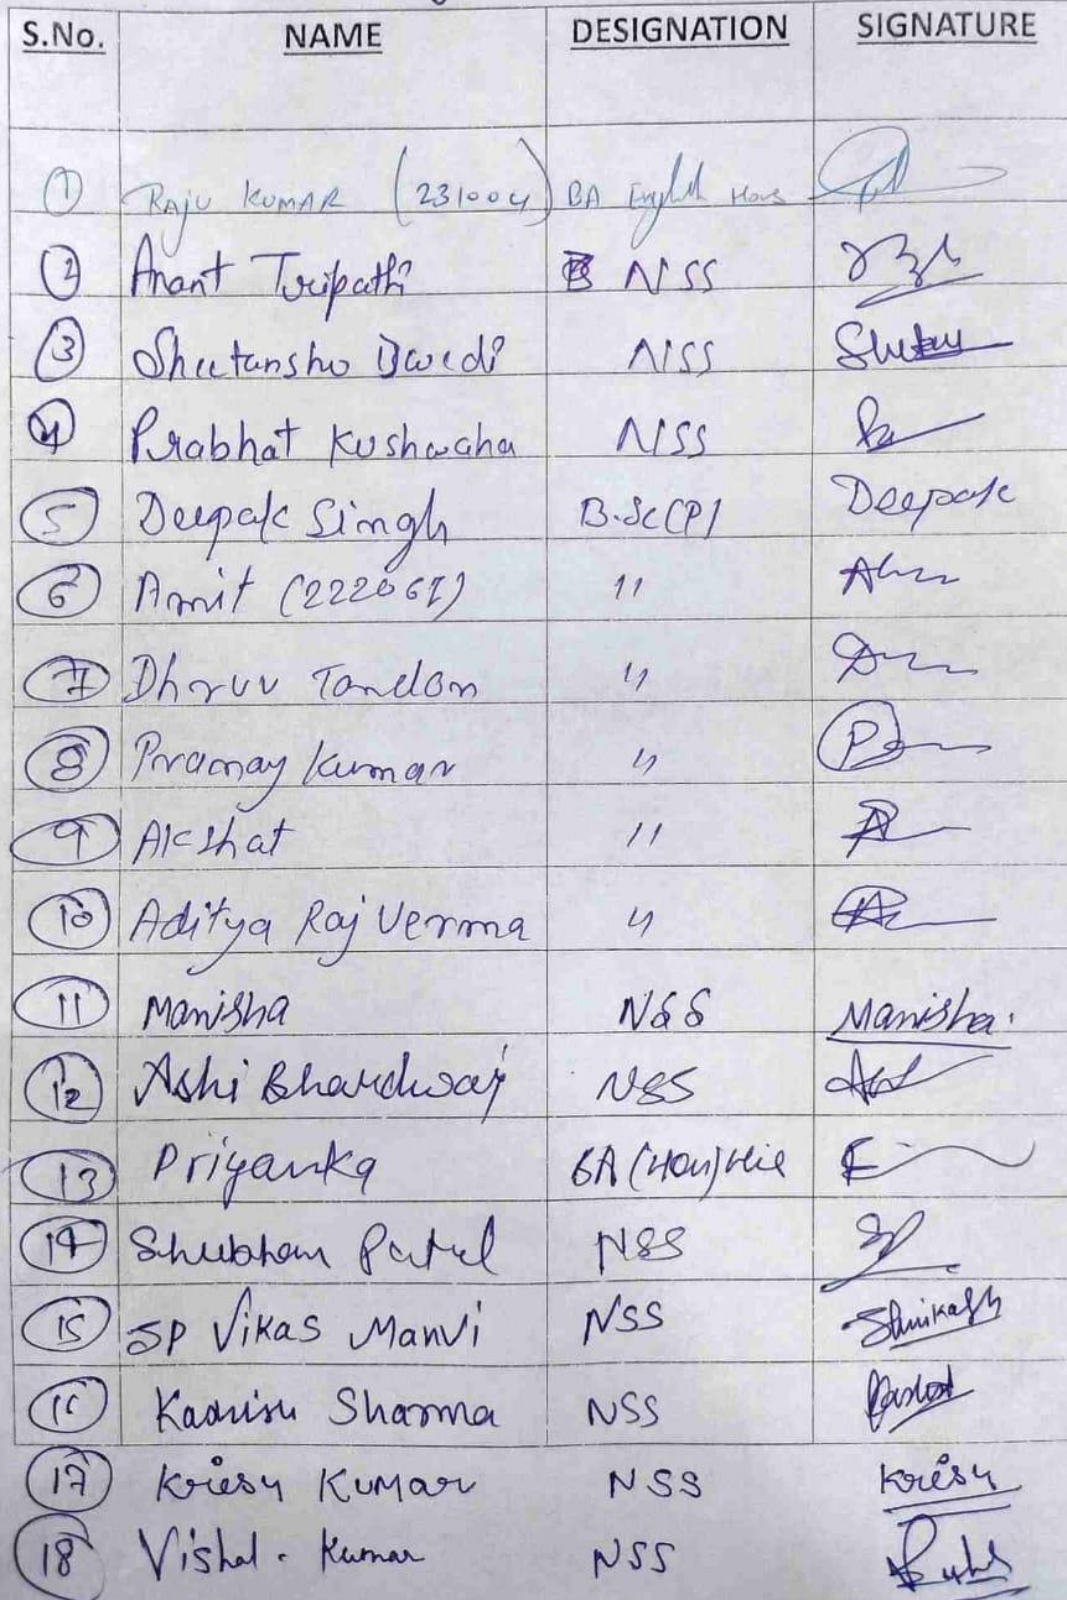 S.No. NAME DESIGNATION SIGNATURE
1 RAJU KUMAR (231004) BA English Hons
2 Anant Tripathi NSS
3 Shutansho Dwedi NSS
4 Prabhat Kushwaha NSS
5 Deepak Singh B.Sc(P) Deepak
6 Amit (222061) "
7 Dhruv Tandon "
8 Pramay Kumar "
9 Akshat "
10 Aditya Raj Verma "
11 Manisha NSS Manisha.
12 Ashi Bhardwaj NSS
13 Priyanka BA (Hon)
14 Shubham Patel NSS
15 SP Vikas Manvi NSS
16 Sharma NSS
17 Kriesy Kumar NSS Kriesy
18 Vishal . Kumar NSS